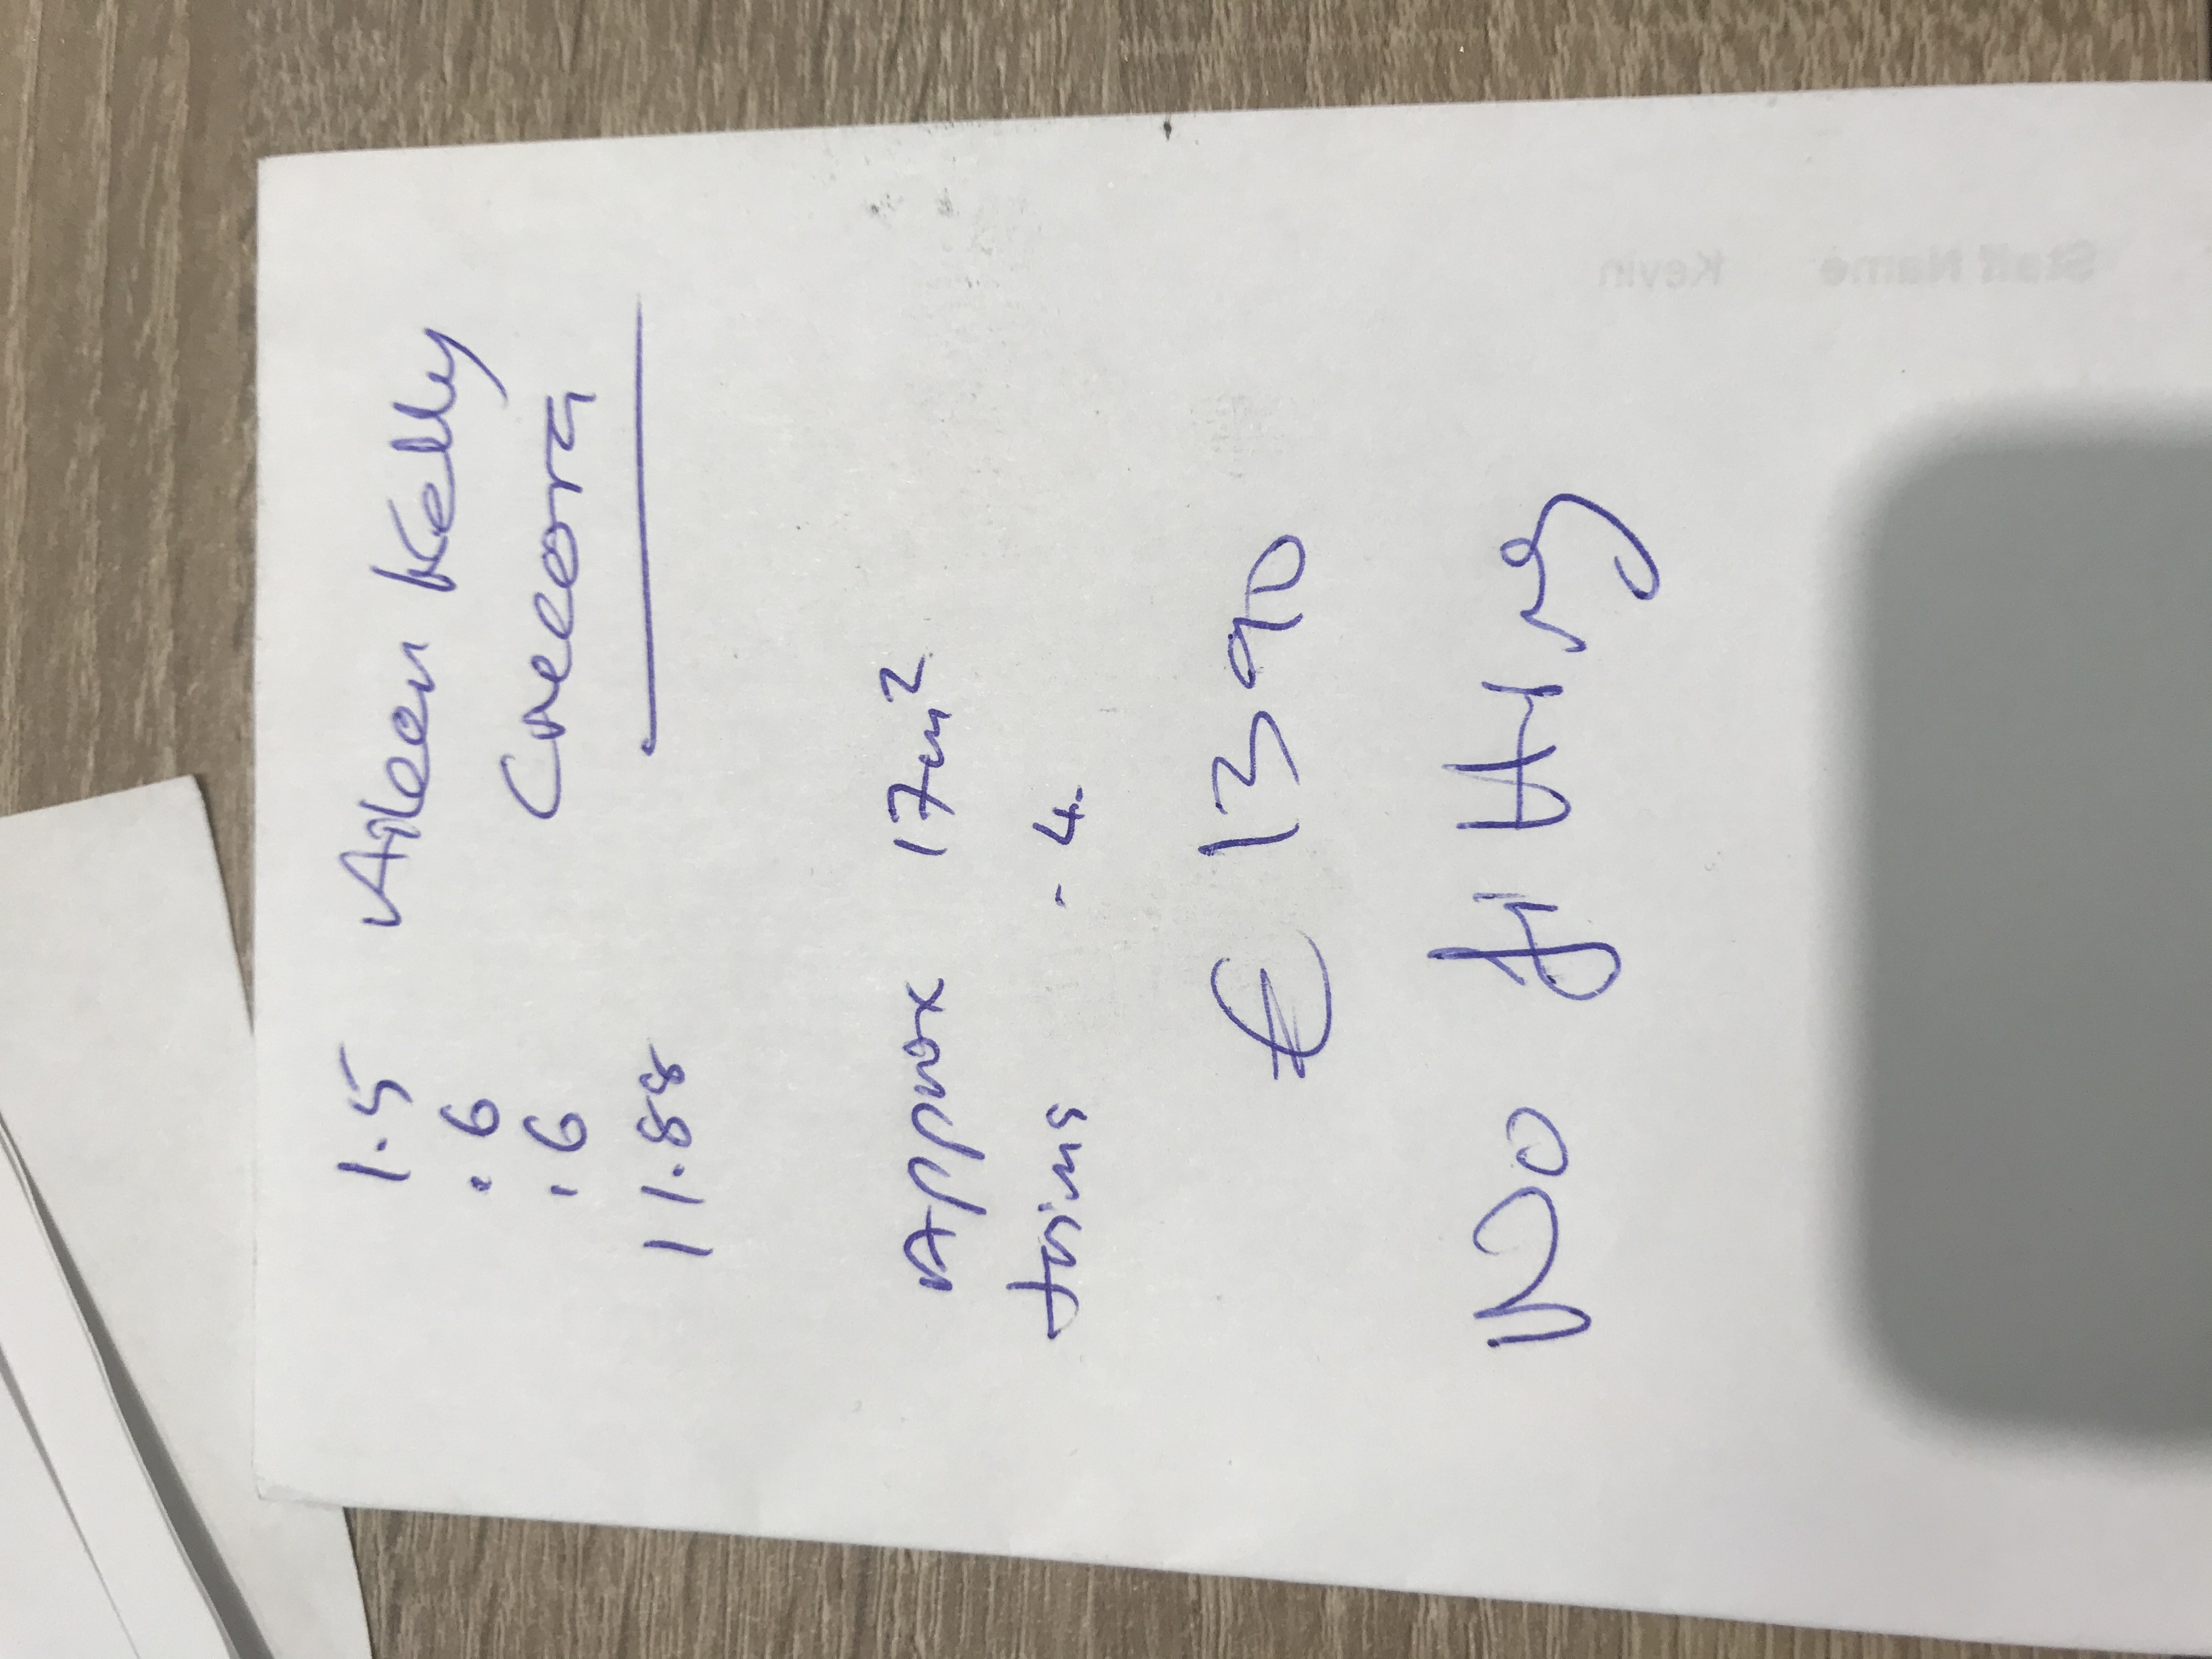 1.5 Aileen Kelly
.6 Creecora
.6
11.88
Approx 17m²
trims - 4.
€ 1390
No fitting
Staff Name Kevin